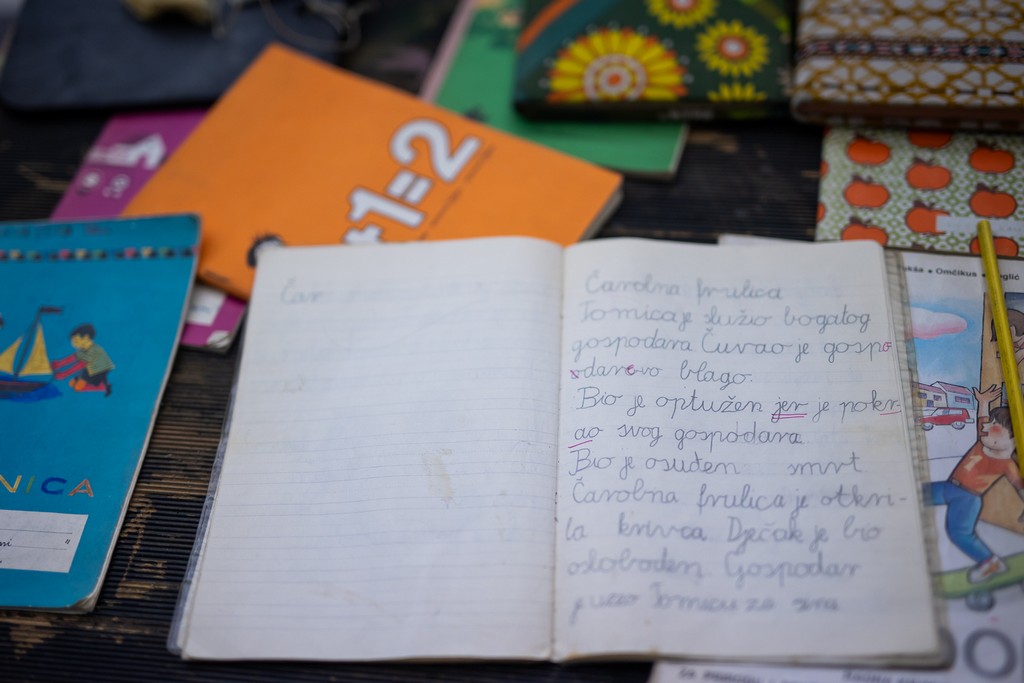 1=2
NICA
Čar
Čarolna frulica
Tomica je služio bogatog
gospodara. Čuvao je gospo
odarovo blago.
Bio je optužen jer je pokr-
ao svog gospodara
Bio je osuđen smrt
Čarolna frulica je otkri-
la krivca Dječak je bio
osloboden. Gospodar
je uzeo Tomicu za sina
Omčikus